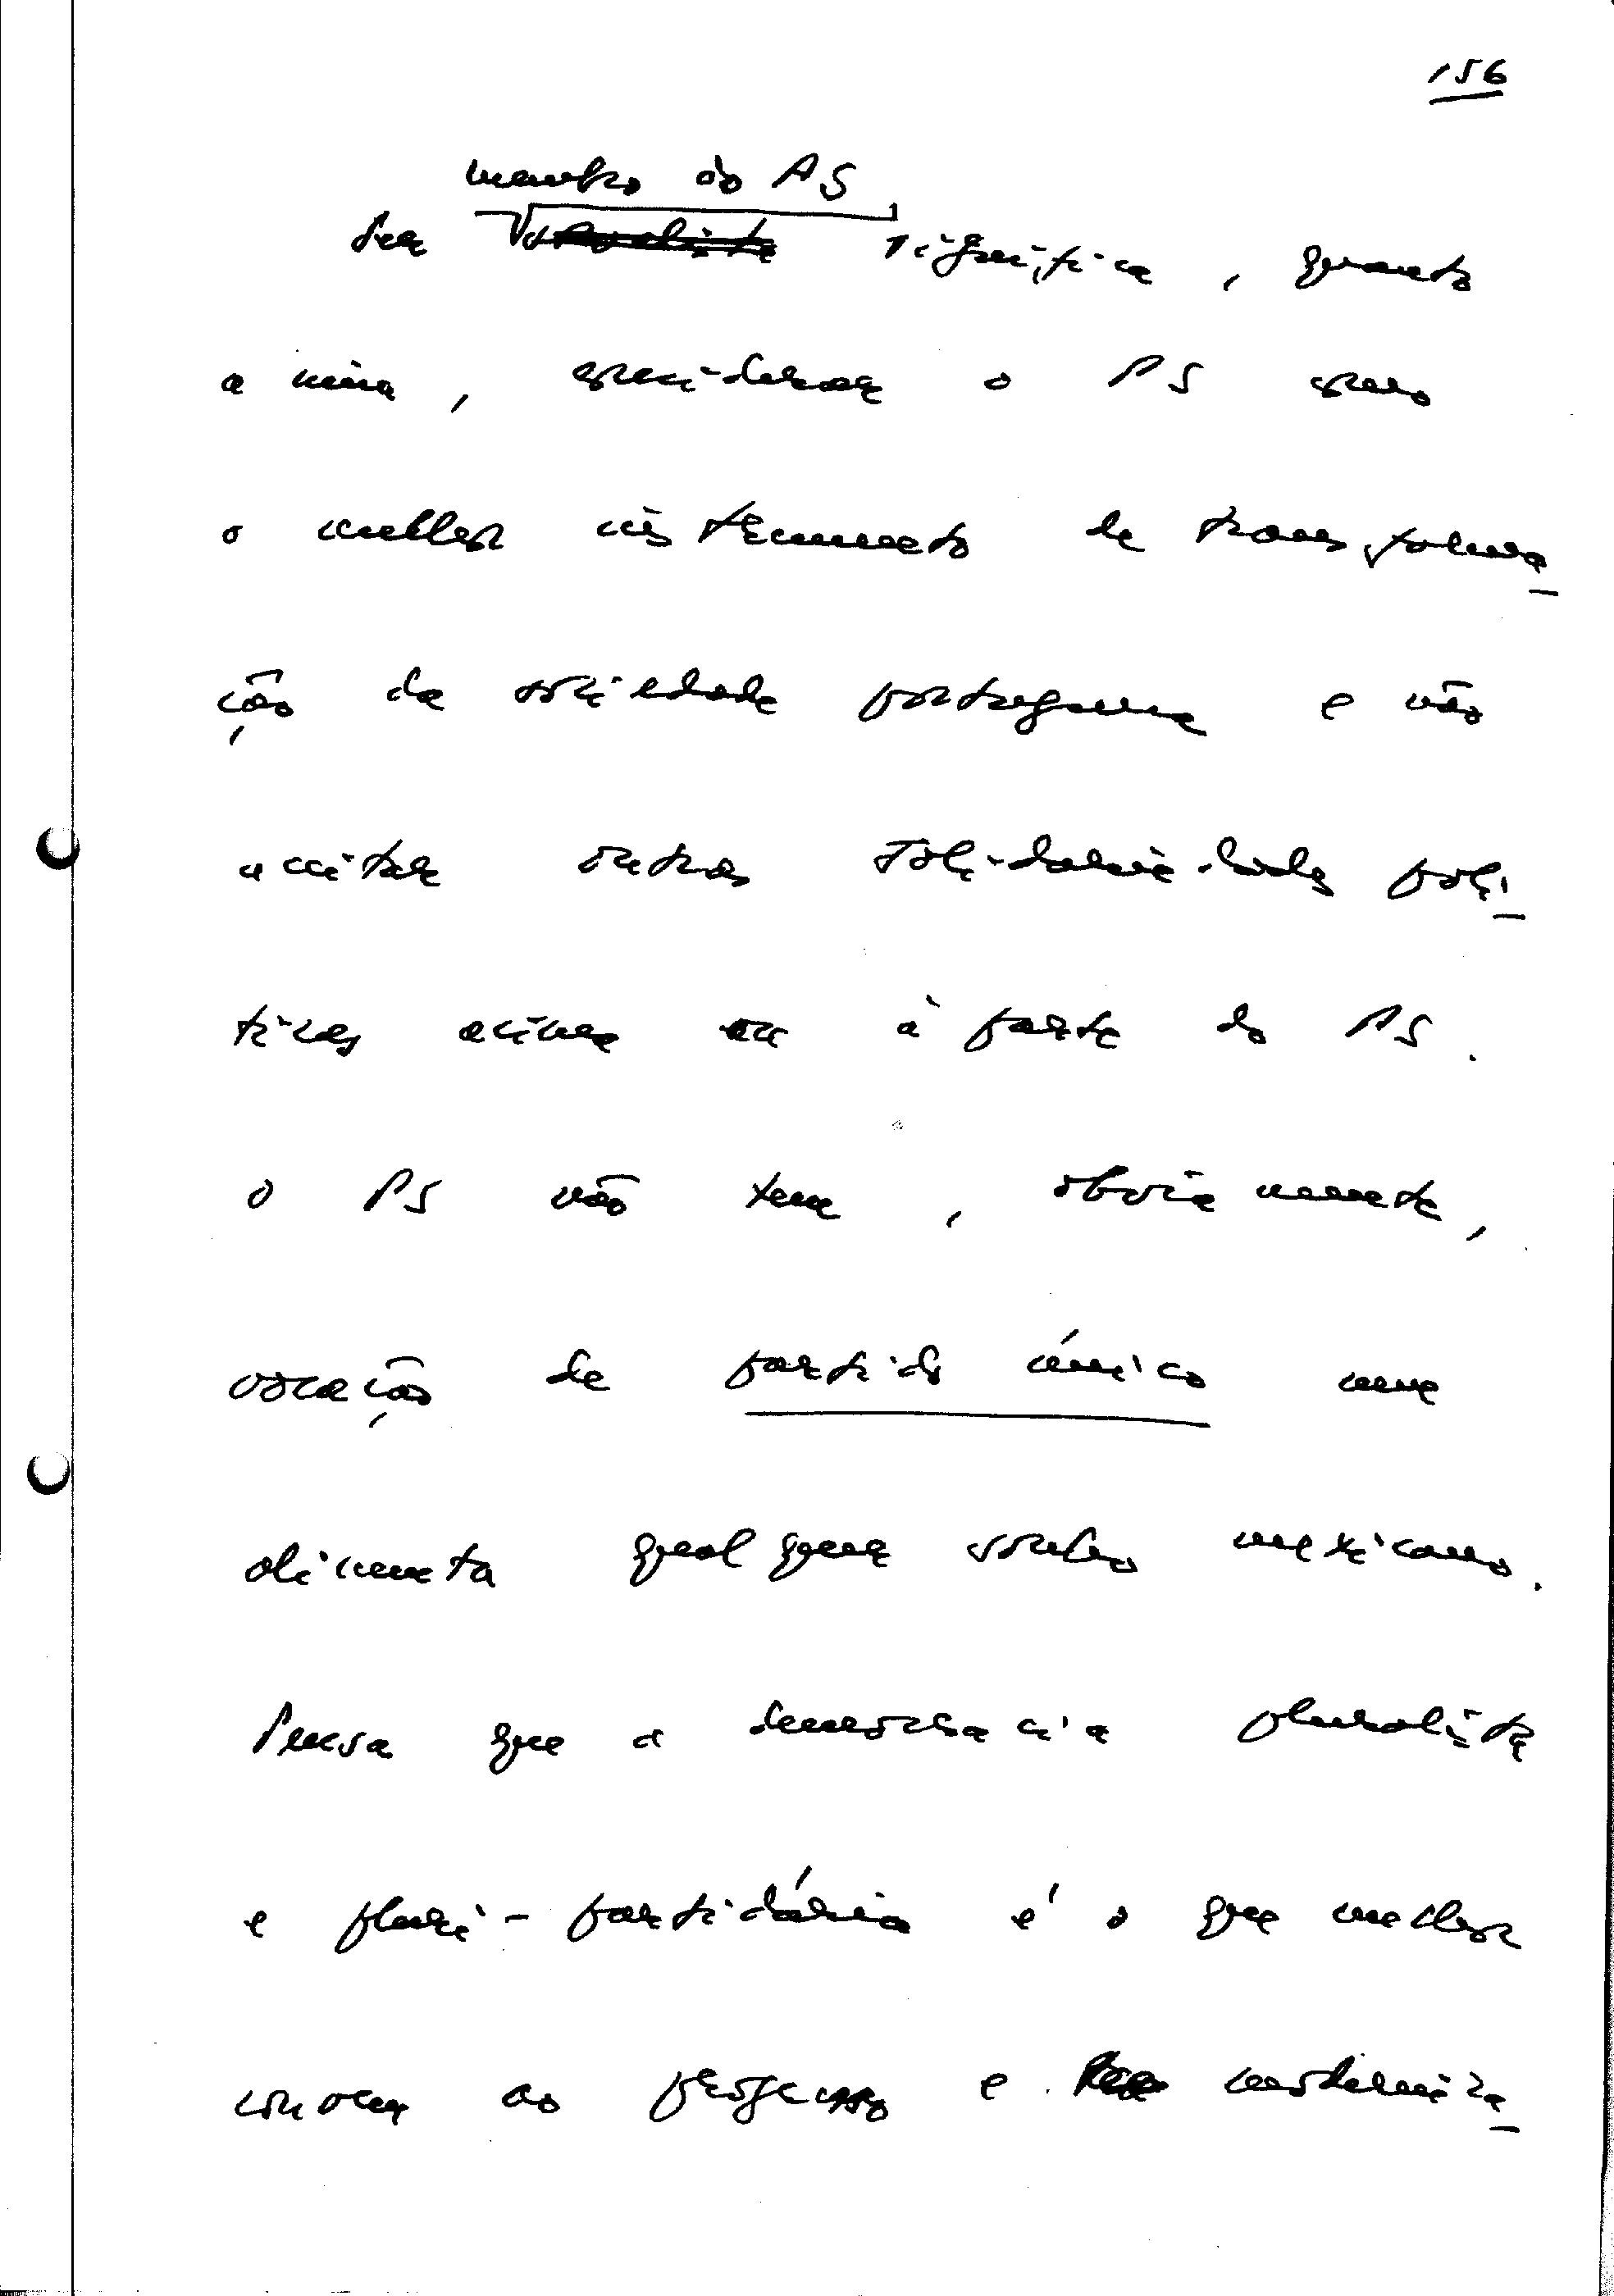 156
membro do PS
Ser socialista significa, quanto
a mim, considerar o PS como
o melhor instrumento de transforma
ção da sociedade portuguesa e não
aceitar outras solidariedades polí
ticas acima ou à parte do PS.
O PS não tem, obviamente,
vocação de partido único nem
alimenta qualquer sonho mexicano.
Pensa que a democracia pluralista
e pluri-partidária é o que melhor
convem ao progresso e moderniza